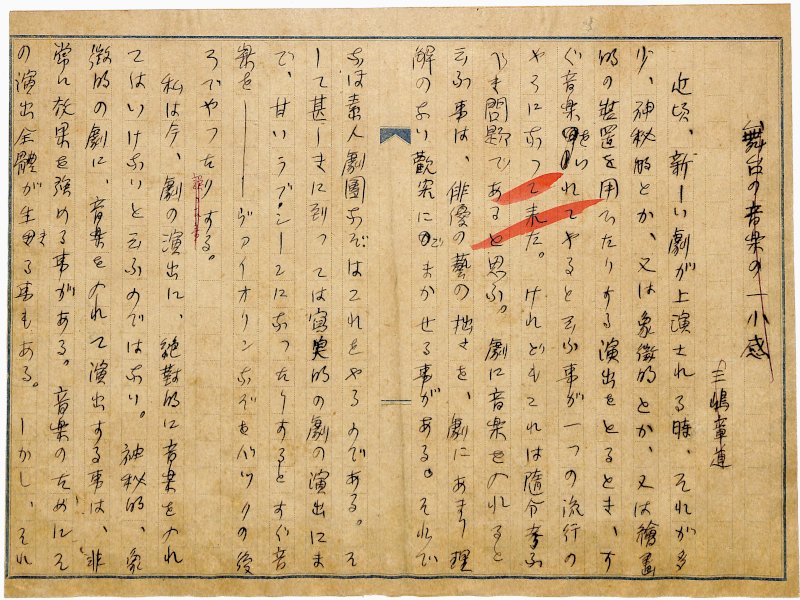 舞台の音楽の一小感
三嶋章道
近頃、新しい劇が上演される時、それが多
少、神秘的とか、又は象徴的とか、又は繪畫
的の装置を用ひたりする演出をとるとき、す
ぐ音楽をいれてやると云ふ事が一つの流行の
やうになつて来た。けれどもこれは随分考ふ
べき問題であると思ふ。劇に音楽を入れると
云ふ事は、俳優の藝の拙さを、劇にあまり理
解のない観客にごまかせる事がある。それで
なほ素人劇團などはこれをやるのである。そ
して甚しきに到つては写実的の劇の演出にま
で、甘いラブシーンになつたりするとすぐ音
楽を――ヴァイオリンなぞをバツクの後
ろでやつたりする。
私は今、劇の演出に、絶対的に音楽を入れ
てはいけないと云ふのではない。神秘的、象
徴的の劇に、音楽を入れて演出する事は、非
常に効果を強める事がある。音楽のためにそ
の演出全體が生きる事もある。しかし、それ